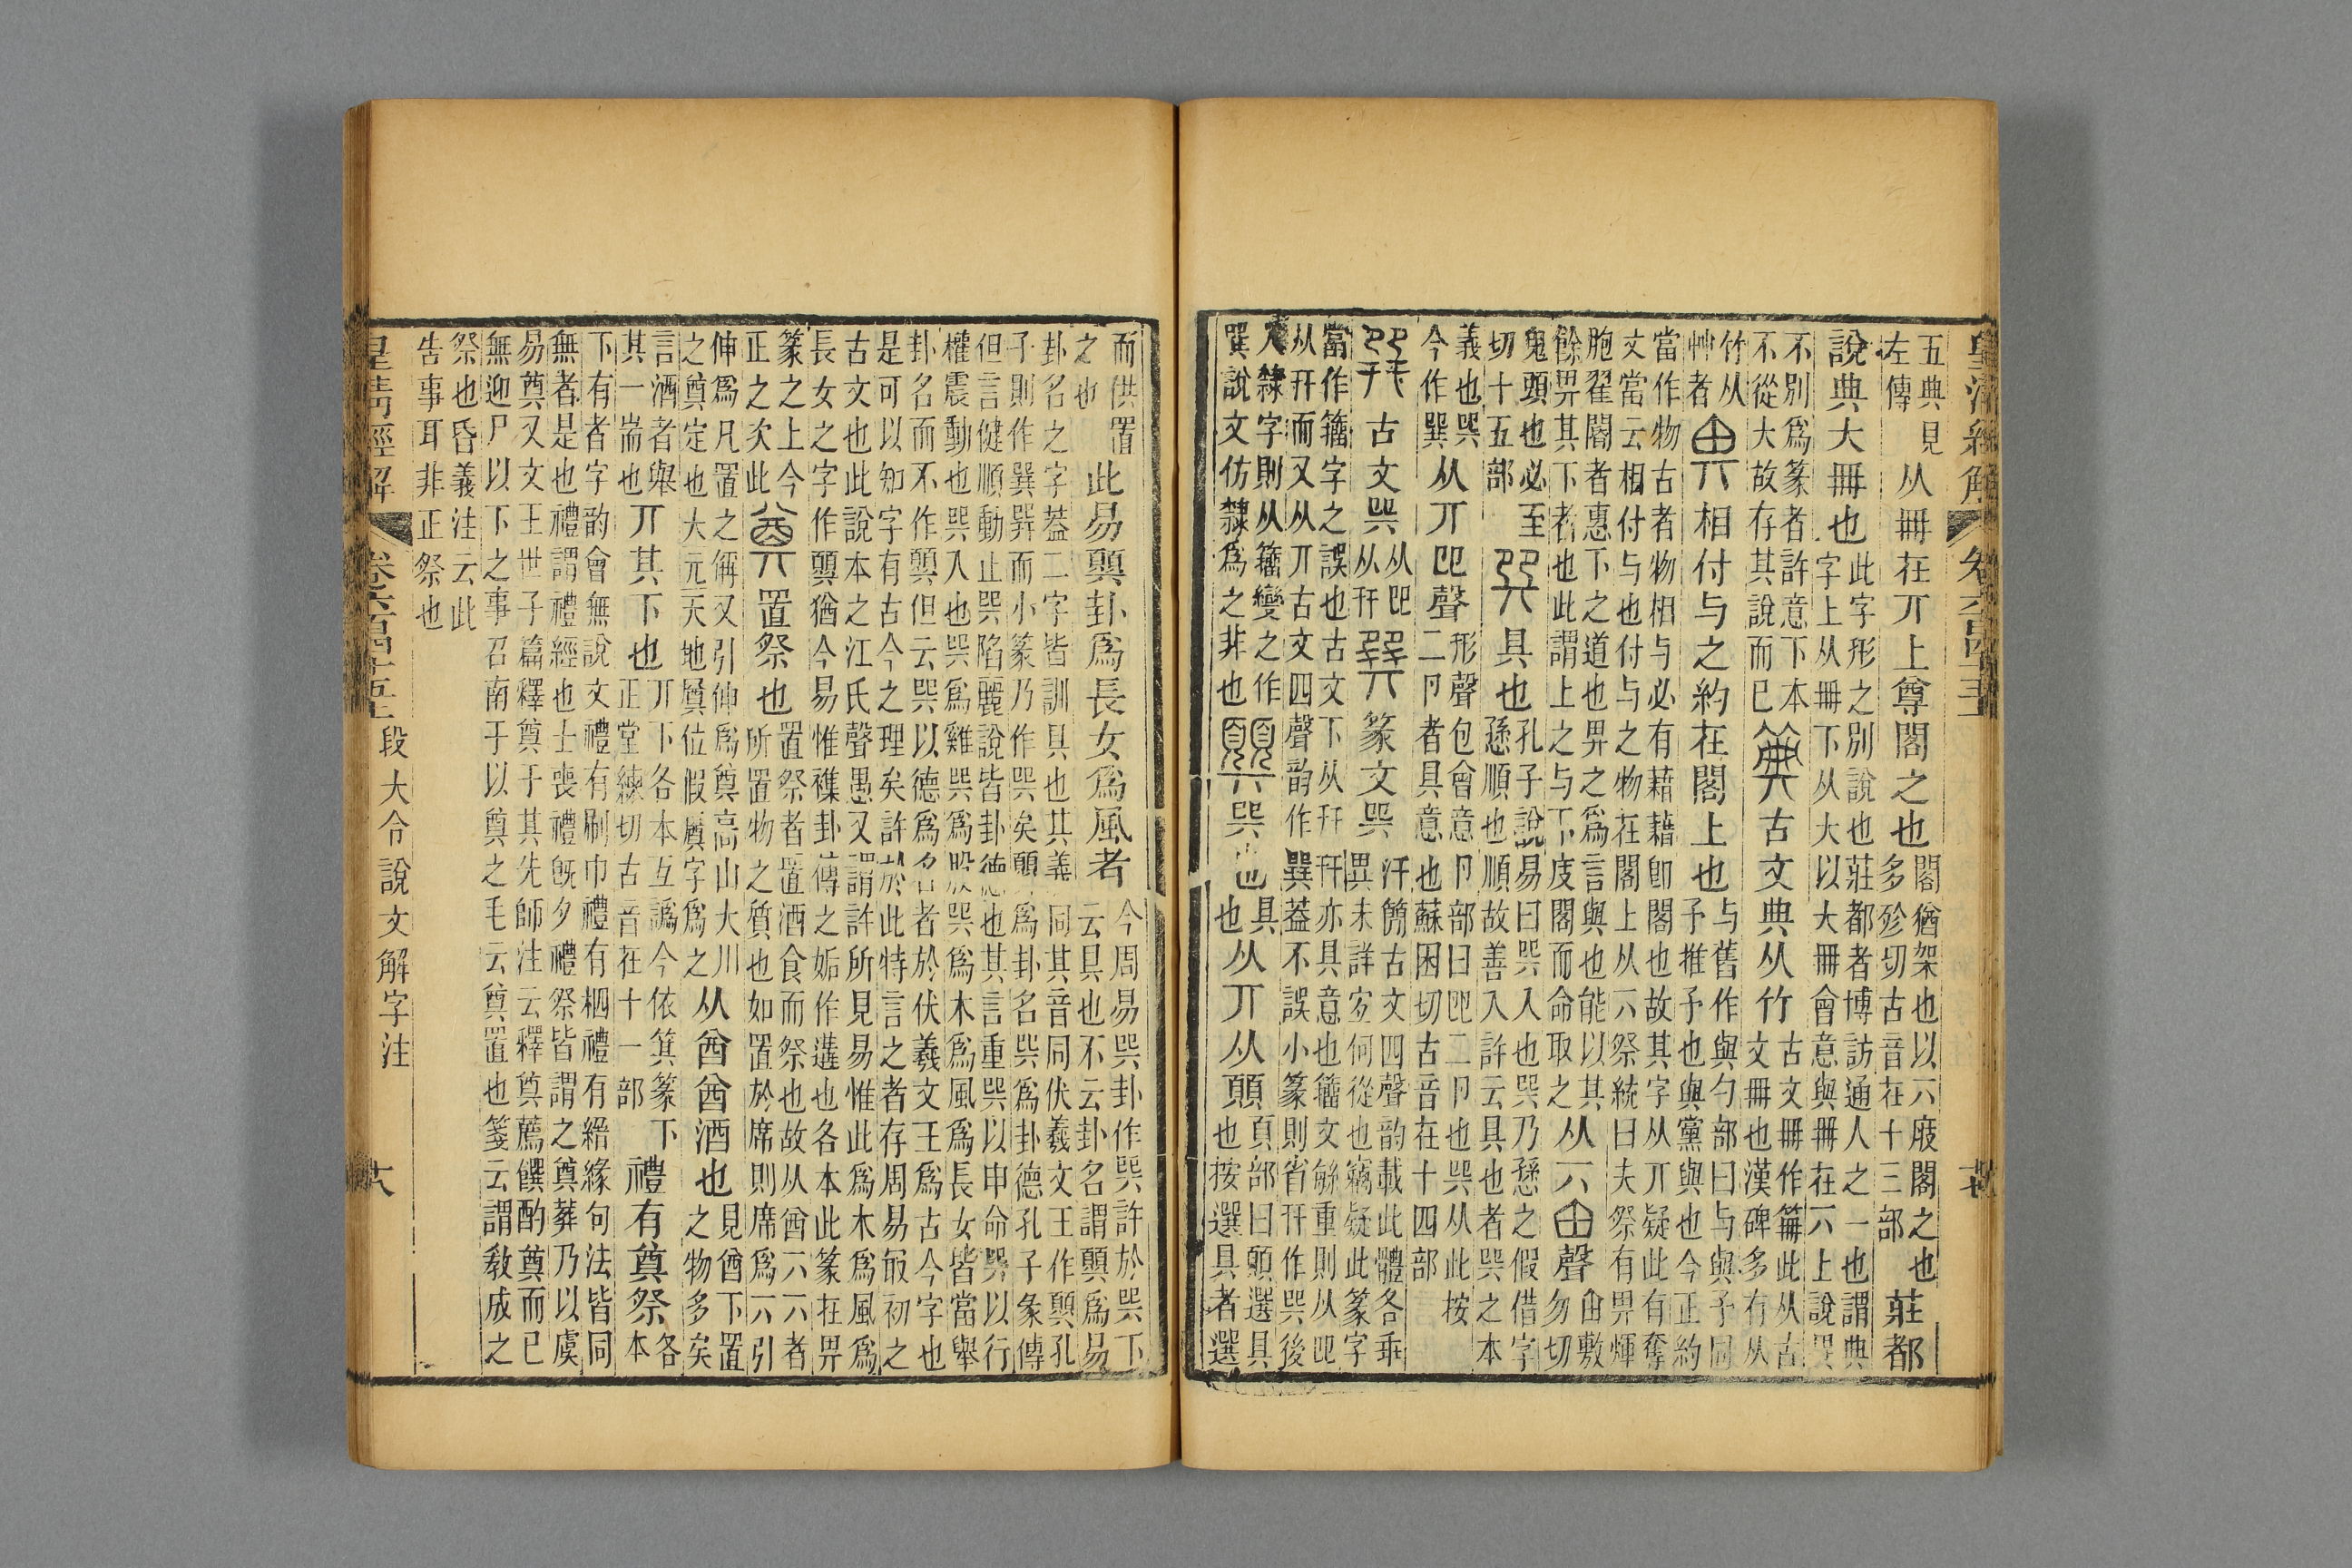 五典見左傳从冊在丌上尊閣之也閣猶架也以丌庋閣之也多殄切古音在十三部莊都
說典大冊也此字形之別說也莊都者博訪通人之一也謂典字上从冊下从大以大冊會意與冊在丌上說異
不別爲篆者許意下本不從大故存其說而已古文典从竹古文冊作𠕋此从古文冊也漢碑多有从
竹从艸者相付与之約在閣上也与舊作與勺部曰与與予同予推予也與黨與也今正約
當作物古者物相与必有藉藉卽閣也故其字从丌疑此有奪文當云相付与也付与之物在閣上从丌祭統曰夫祭有畀煇
胞翟閽者惠下之道也畀之爲言與也能以其餘畀其下者也此謂上之与下庋閣而命取之从丌甶聲甶敷勿切
鬼頭也必至切十五部具也孔子說易曰巺入也巺乃愻之假借字愻順也順故善入許云具也者巺之本
義也巺今作巽从丌𢀳聲形聲包會意卪部曰𢀳二卪也巺从此按二卪者具意也蘇困切古音在十四部
古文巺从𢀳从幵篆文巺汗簡古文四聲韵載此體各乖異未詳宜何從也竊疑此篆字
當作籒字之誤也古文下从幵幵亦具意也籒文緐重則从𢀳从幵而又从丌古文四聲韵作巽葢不誤小篆則省幵作巺後
人隸字則从籒變之作巽說文仿隸爲之非也巺也具也从丌从𩠹頁部曰𩠹選具也按選具者選
而供置之也此易顨卦爲長女爲風者今周易巺卦作巽許於巺下云具也不云卦名謂顨爲易
卦名之字葢二字皆訓具也其義同其音同伏羲文王作顨孔子則作巽巽而小篆乃作巺矣顨爲卦名巺爲卦德孔子彖傳
但言健順動止巺陷麗說皆卦德也其言重巺以申命巺以行權震動也巺入也巺爲雞巺爲股巺爲木爲風爲長女皆當舉
卦名而不作顨但云巺以德爲名者於伏羲文王爲古今字也是可以知字有古今之理矣許於此特言之者存周易冣初之
古文也此說本之江氏聲愚又謂許所見易惟此爲木爲風爲長女之字作顨猶今易惟襍卦傳之姤作遘也各本此篆在畀
篆之上今正之次此置祭也置祭者置酒食而祭也故从酋丌丌者所置物之質也如置於席則席爲丌引
伸爲凡置之偁又引伸爲奠高山大川之奠定也大元天地奠位假奠字爲之从酋酋酒也見酋下置之物多矣
言酒者舉其一耑也丌其下也丌下各本互譌今依箕篆下正堂練切古音在十一部禮有奠祭各本
下有者字韵會無說文禮有刷巾禮有柶禮有縉緣句法皆同無者是也禮謂禮經也士喪禮旣夕禮祭皆謂之奠葬乃以虞
易奠又文王世子篇釋奠于其先師注云釋奠薦饌酌奠而已無迎尸以下之事召南于以奠之毛云奠置也箋云謂敎成之
祭也昏義注云此告事耳非正祭也
皇清經解
卷六百四十五上
段大令說文解字注